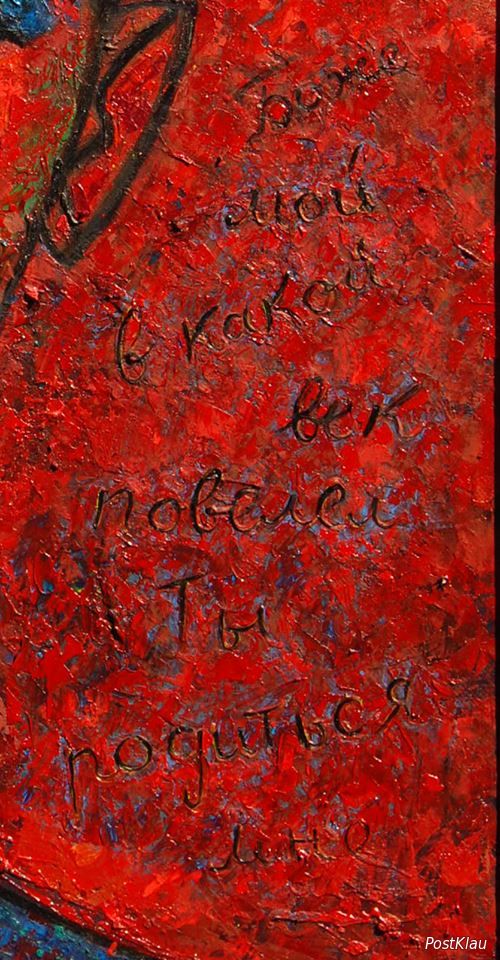 Боже
мой
в какой
век
повелел
Ты
родиться
мне
PostKlau